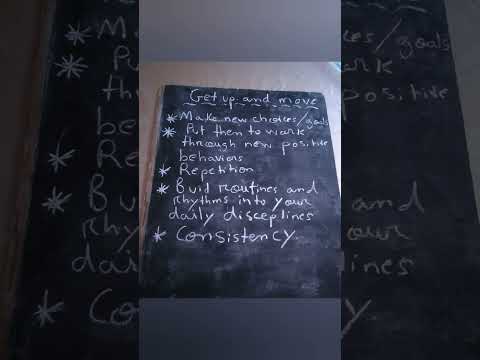 Get up and move
* Make new choices/goals
* Put them to work
through new positive
behaviors
* Repetition
* Buid routines and
rhythms into your
daily disceplines
* Consistency.